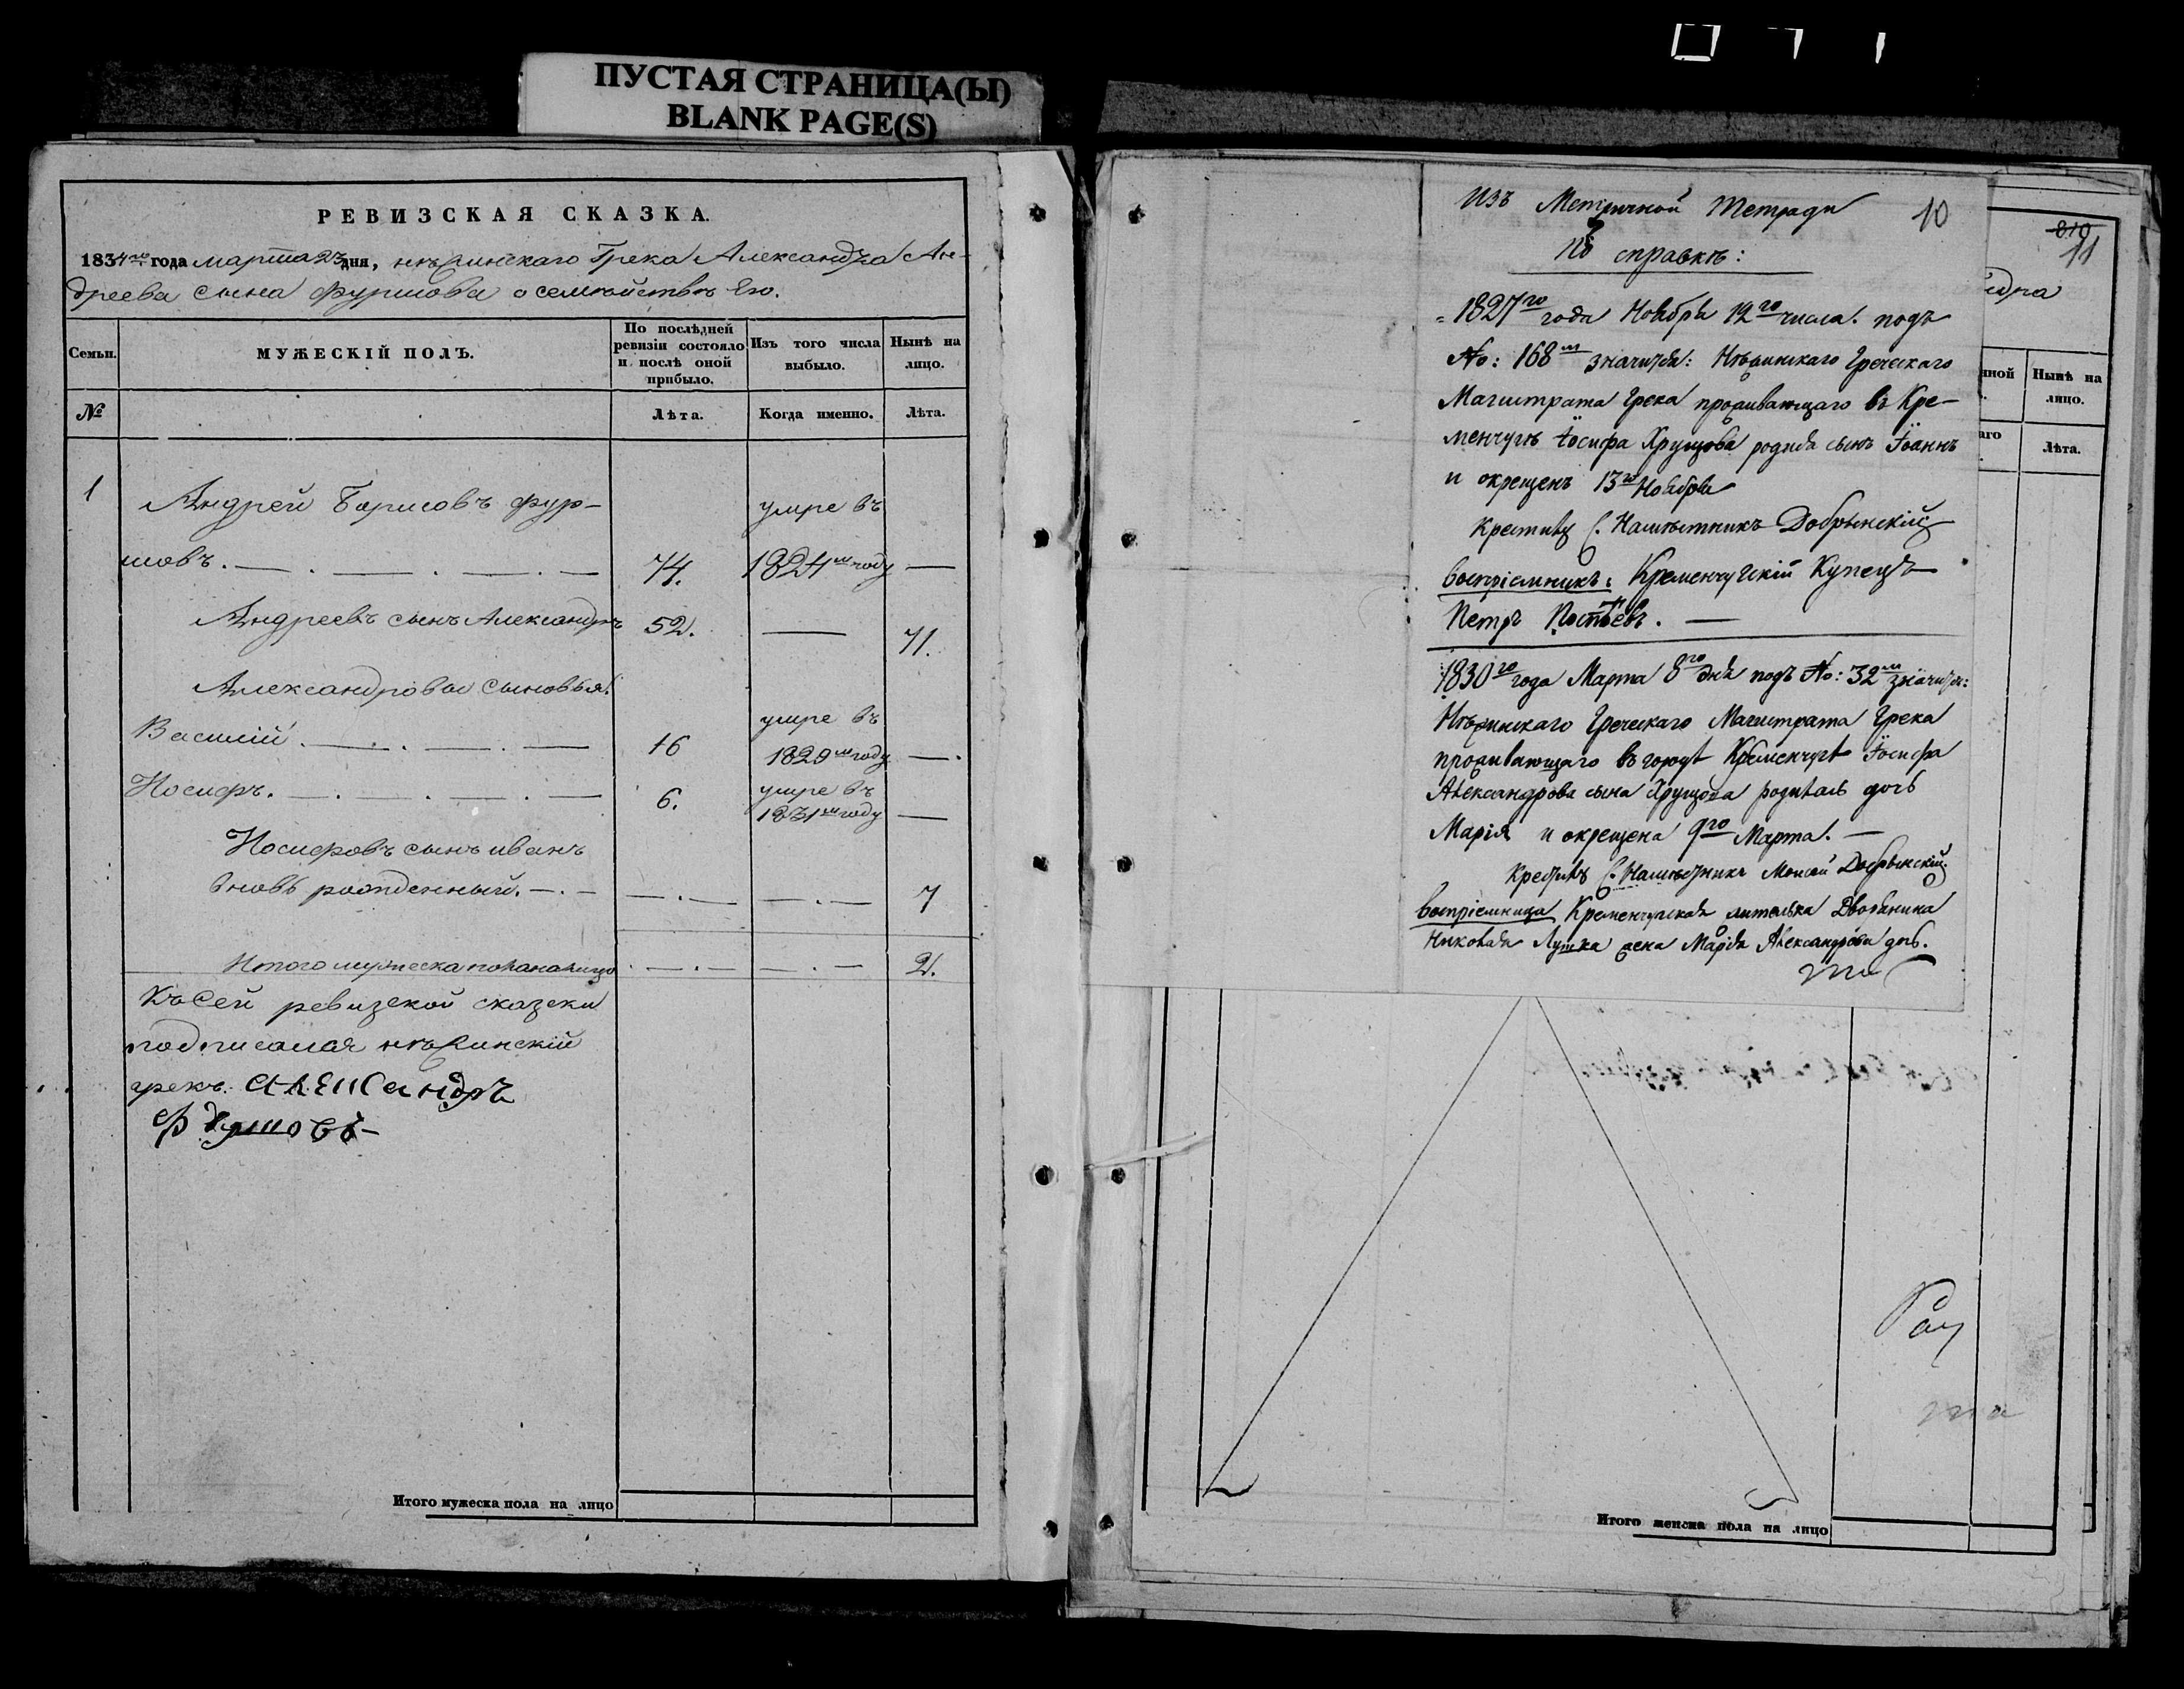 ПУСТАЯ СТРАНИЦА(Ы)
BLANK PAGE(S)
РЕВИЗСКАЯ СКАЗКА.
1834го года марта 23 дня, нѣжинскаго Грека Александра Ан-
дреева сына Фуршова о семѣйствѣ Его.
Семьи. МУЖЕСКІЙ ПОЛЪ. По послѣдней ревизіи состояло и послѣ оной прибыло. Изъ того числа выбыло. Нынѣ на лицо.
№ Лѣта. Когда именно. Лѣта.
1 Андрей Борисовъ Фур- умре въ
шовъ. 74. 1824м году
Андреевъ сынъ Александръ 52. 71.
Александровы сыновья:
умре въ
Василій. 16 1829м году
Иосифъ. 6. умре въ
1831м году
Иосифовъ сынъ иванъ
вновь рожденный. 7
Итого мужеска пола на лицо 2.
Къ Сей ревизской сказки
подписался нѣжинскій
грекъ. Александръ
Фуршовъ
Итого мужеска пола на лицо
Изъ Метричной Тетради 10
По справкѣ:
1827го года Ноября 12го числа. подъ
No: 168м значитъся: Нѣжинскаго Греческаго
Магистрата Грека проживающаго въ Кре-
менчугѣ Іосифа Хрущова родися сынъ Іоаннъ
и окрещенъ 13го Ноября
Крестилъ С. Намѣстникъ Добрынскій
воспріемникъ: Кременчугскій Купецъ
Петръ
1830го года Марта 8го дня подъ No: 32м значится:
Нѣжинскаго Греческаго Магистрата Грека
проживающаго въ городѣ Кременчугѣ Іосифа
Александрова сына Хрущова родилась дочь
Марія и окрещена 9го Марта.
Крестилъ С. Намѣстникъ Моисей Добрынскій
воспріемница Кременчугская жителька Дворянина
Николая жена Марія Александрова дочь.
810
11
ндра
нной Нынѣ на лицо.
аго Лѣта.
Итого женска пола на лицо